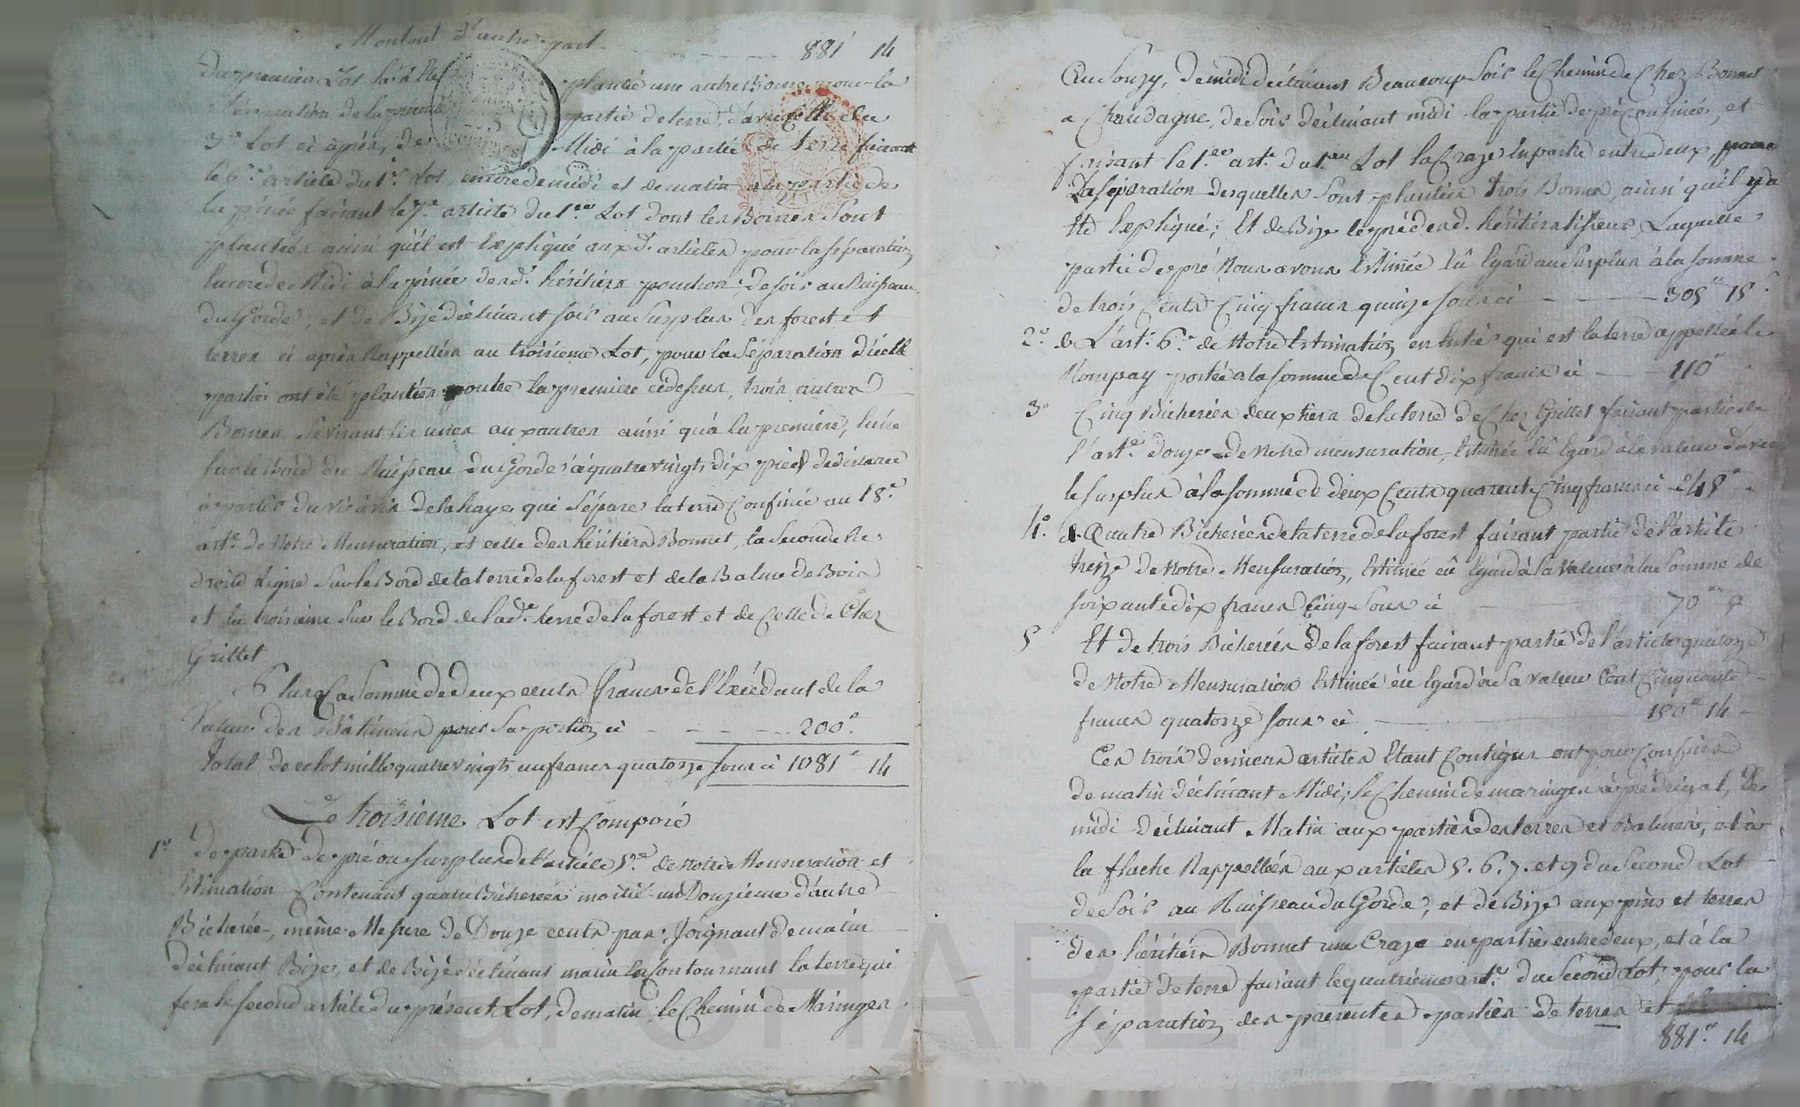 Montant d'autre part 881 14
du premier Lot là a été planté une autre Borne pour la
séparation de la partie de terre, d'avec celle du
3e Lot ci après, de Midi à la partie de terre faisant
le 6e article du 1er Lot, encore de midi et de matin à la partie de
la pinée faisant le 7e article du 1er Lot dont les Bornes sont
plantées ainsi qu'il est Expliqué aux d. articles pour la séparation
encore de Midi à la pinée des d. héritiers ponchon, de soir au Ruisseau
du Gorde, et de Bize déclinant soir au surplus des forest et
terres ci après Rappellées au troisieme Lot, pour la Séparation d'icelle
partie ont été plantées outre la premiere cidessus, trois autres
Bornes se visant les unes aux autres ainsi qu'à la premiere, l'une
sur le Bord du Ruisseau du Gorde à quatre vingt dix pieds de distance
à partir du vis à vis de la haye qui Sépare la terre Confinée au 18e
art. de Notre Mensuration, et celle des héritiers Bonnet, la seconde en
droite Ligne sur le Bord de la terre de la forest et de la Balme de Bois
et la troisieme sur le Bord de lad. terre de la forest et de Celle de Chez
Grillet
Plus la Somme de deux cents francs de l'Excédant de la
Valeur des Bâtiments pour sa portion ci 200
Total de ce lot mille quatre vingt un francs quatorze sous ci 1081 14
Le troisieme Lot est Composé
1° de partie de pré ou surplus de l'article 5e de notre Mensuration et
Estimation Contenant quatre Bicherées moitié un Douzieme d'autre
Bicherée, même Mesure de Douze cents pas, Joignant de matin
déclinant Bize, et de Bize déclinant matin la Contournant la terre qui
fera le second article du présent Lot, de matin le Chemin de Maringes
au Souzy, de midi déclinant Beaucoup Soir le Chemin de Chez Bonnet
a Chaudagne, de Soir déclinant midi la partie de pré Confinée, et
faisant le 1er art. du 1er Lot la Craze en partie entre deux, pour
La séparation desquelles sont plantées trois Bornes, ainsi qu'il y a
Eté Expliqué; Et de Bize le pré des d. héritiers Laquelle
partie de pré Nous avons Estimée Eû Egard au Surplus à la somme
de trois Cents Cinq francs quinze sous ci 305 15
2° de L'art. 6e de Notre Estimation en Entier qui est la terre appellée le
Rompay portée a la somme de Cent dix francs ci 110
3° Cinq Bicherées deux tiers de la terre de Chez Grillet faisant partie de
l'art. douze de Notre mensuration, Estimée Eû Egard à la valeur
le surplus à la somme de deux Cents quarente Cinq francs ci 245
4° de Quatre Bicherées de la terre de la forest faisant partie de l'article
treize de Notre Mensuration, Estimée eû Egard à la Valeur à la Somme de
soixante dix francs Cinq Sous ci 70 5
5 Et de trois Bicherées de la forest faisant partie de l'article quatorze
de Notre Mensuration Estimée eû Egard à Sa valeur Cent Cinquante
francs quatorze sous ci 150 14
Ces trois derniers articles Etant Contigus ont pour Confins
de matin déclinant Midi, le Chemin de maringes à de
midi déclinant Matin aux parties des terres et Balmes, et à
la flache Rappellées aux articles 5. 6. 7. et 9 du Second Lot
de Soir au Ruisseau du Gorde, et de Bize aux pins et terres
des héritiers Bonnet une Craze en partie entre deux, et à la
partie de terre faisant le quatrieme art. du Second Lot, pour la
séparation des présentes parties de terres et
881 14